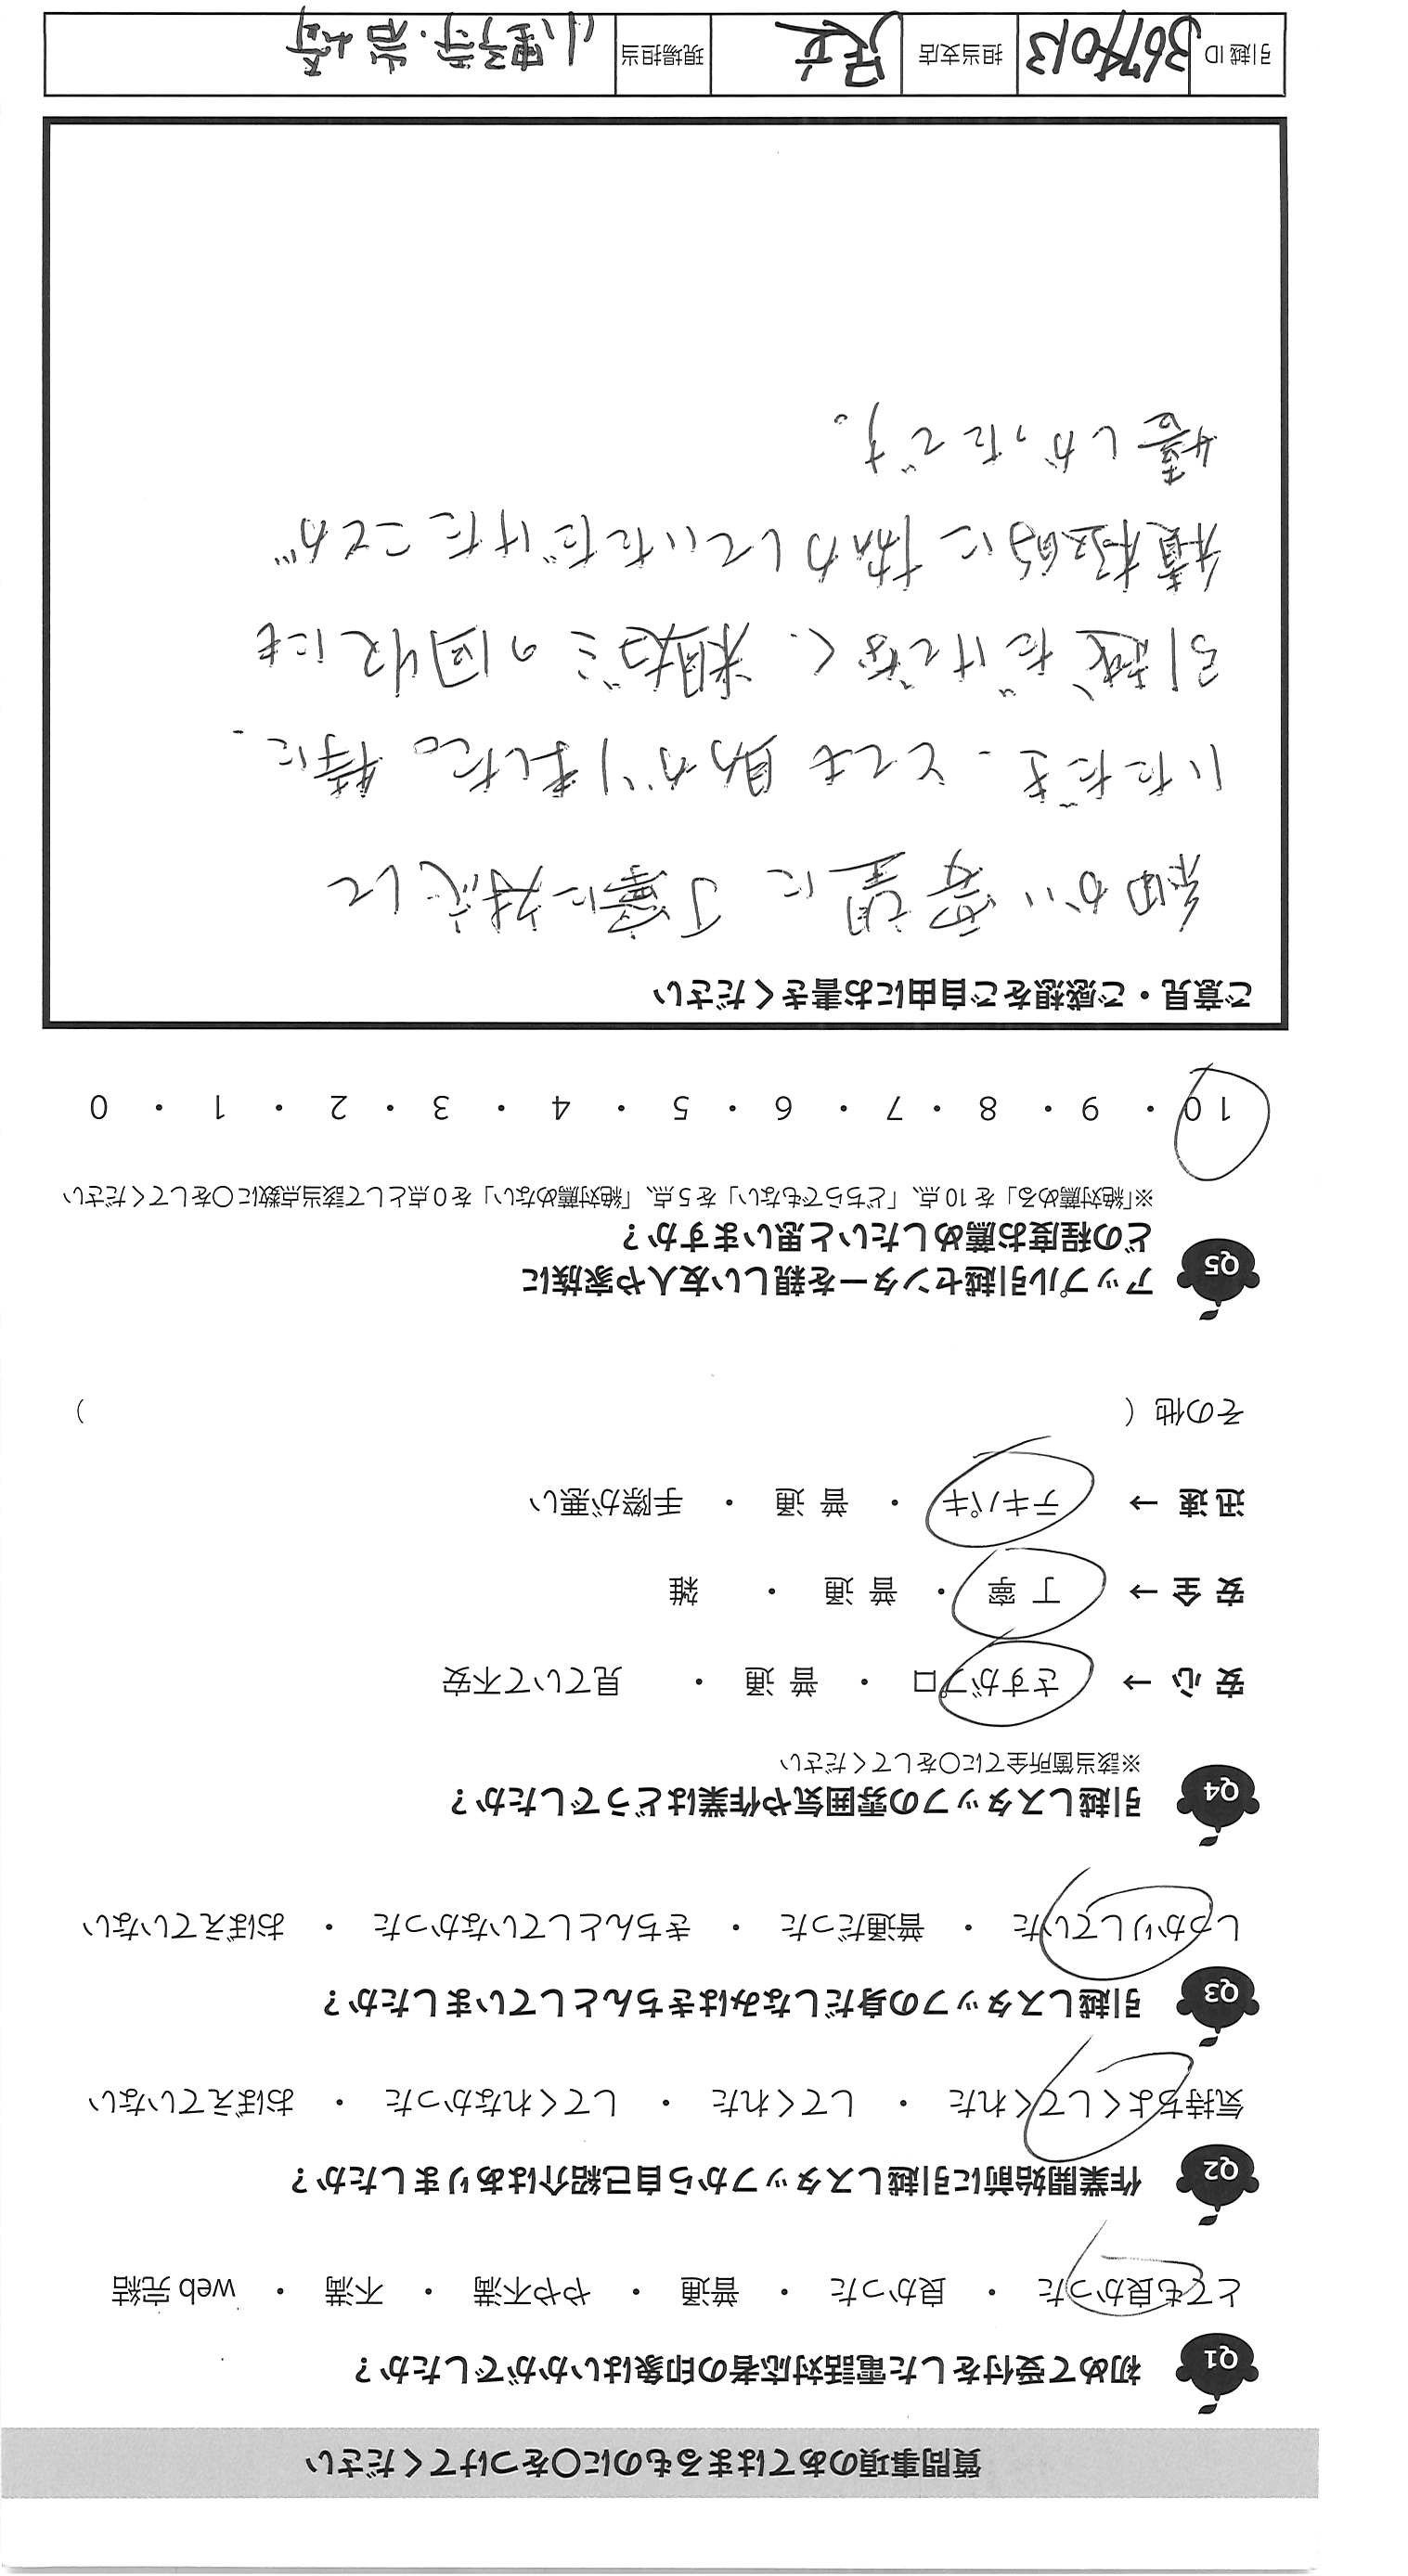 質問事項のあてはまるものに○をつけてください
Q1 初めて受付をした電話対応者の印象はいかがでしたか？
とても良かった ・ 良かった ・ 普通 ・ やや不満 ・ 不満 ・ web 完結
Q2 作業開始前に引越しスタッフから自己紹介はありましたか？
気持ちよくしてくれた ・ してくれた ・ してくれなかった ・ おぼえていない
Q3 引越しスタッフの身だしなみはきちんとしていましたか？
しっかりしていた ・ 普通だった ・ きちんとしていなかった ・ おぼえていない
Q4 引越しスタッフの雰囲気や作業はどうでしたか？
※該当箇所全てに○をしてください
安心 → さすがプロ ・ 普通 ・ 見ていて不安
安全 → 丁寧 ・ 普通 ・ 雑
迅速 → テキパキ ・ 普通 ・ 手際が悪い
その他（ ）
Q5 アップル引越センターを親しい友人や家族に
どの程度お薦めしたいと思いますか？
※「絶対薦める」を 10 点、「どちらでもない」を 5 点、「絶対薦めない」を 0 点として該当点数に○をしてください
10 ・ 9 ・ 8 ・ 7 ・ 6 ・ 5 ・ 4 ・ 3 ・ 2 ・ 1 ・ 0
ご意見・ご感想をご自由にお書きください
細かい要望に丁寧に対応して
いただき、とても助かりました。特に、
引越だけでなく、粗大ゴミの回収にも
積極的に協力していただけたことが
嬉しかったです。
引越 ID 担当支店 足立 現場担当